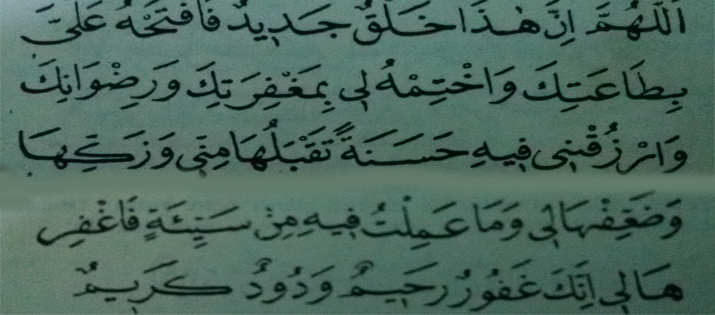 اَللّٰهُمَّ اِنَّ هٰذَا خَلْقٌ جَدِيدٌ فَافْتَحْهُ عَلَيَّ
بِطَاعَتِكَ وَاخْتِمْهُ لِي بِمَغْفِرَتِكَ وَرِضْوَانِكَ
وَارْزُقْنِي فِيهِ حَسَنَةً تَقْبَلُهَا مِنِّي وَزَكِّهَا
وَضَعِّفْهَا لِي وَمَا عَمِلْتُ فِيهِ مِنْ سَيِّئَةٍ فَاغْفِرْ
هَا لِي اِنَّكَ غَفُورٌ رَحِيمٌ وَدُودٌ كَرِيمٌ